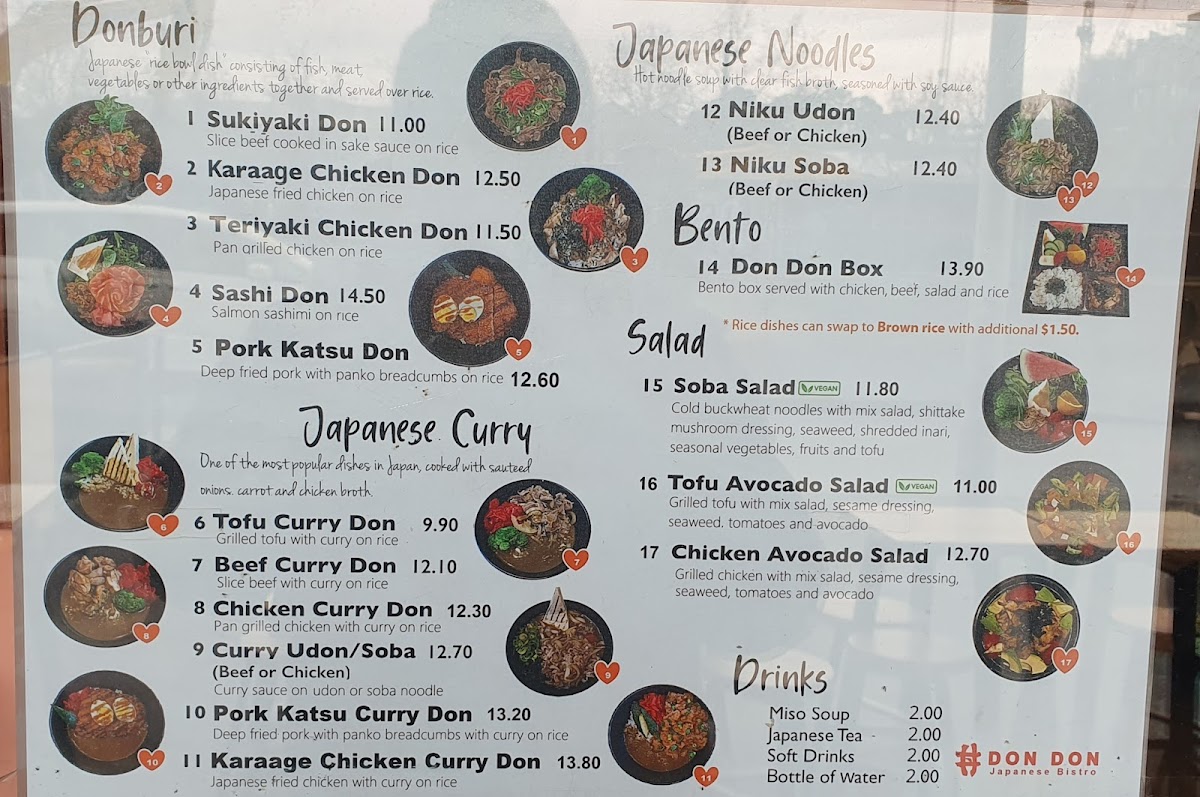 Donburi
Japanese "rice bowl dish" consisting of fish, meat,
vegetables or other ingredients together and served over rice.
1 Sukiyaki Don 11.00
Slice beef cooked in sake sauce on rice
2 Karaage Chicken Don 12.50
Japanese fried chicken on rice
3 Teriyaki Chicken Don 11.50
Pan grilled chicken on rice
4 Sashi Don 14.50
Salmon sashimi on rice
5 Pork Katsu Don
Deep fried pork with panko breadcumbs on rice 12.60
1
2
3
4
5
Japanese Curry
One of the most popular dishes in Japan, cooked with sauteed
onions. carrot and chicken broth.
6 Tofu Curry Don 9.90
Grilled tofu with curry on rice
7 Beef Curry Don 12.10
Slice beef with curry on rice
8 Chicken Curry Don 12.30
Pan grilled chicken with curry on rice
9 Curry Udon/Soba 12.70
(Beef or Chicken)
Curry sauce on udon or soba noodle
10 Pork Katsu Curry Don 13.20
Deep fried pork with panko breadcumbs with curry on rice
11 Karaage Chicken Curry Don 13.80
Japanese fried chicken with curry on rice
6
7
8
9
10
11
Japanese Noodles
Hot noodle soup with clear fish broth, seasoned with soy sauce.
12 Niku Udon 12.40
(Beef or Chicken)
13 Niku Soba 12.40
(Beef or Chicken)
12
13
Bento
14 Don Don Box 13.90
Bento box served with chicken, beef, salad and rice
14
* Rice dishes can swap to Brown rice with additional $1.50.
Salad
15 Soba Salad VEGAN 11.80
Cold buckwheat noodles with mix salad, shittake
mushroom dressing, seaweed, shredded inari,
seasonal vegetables, fruits and tofu
16 Tofu Avocado Salad VEGAN 11.00
Grilled tofu with mix salad, sesame dressing,
seaweed. tomatoes and avocado
17 Chicken Avocado Salad 12.70
Grilled chicken with mix salad, sesame dressing,
seaweed, tomatoes and avocado
15
16
17
Drinks
Miso Soup 2.00
Japanese Tea 2.00
Soft Drinks 2.00
Bottle of Water 2.00
DON DON
Japanese Bistro